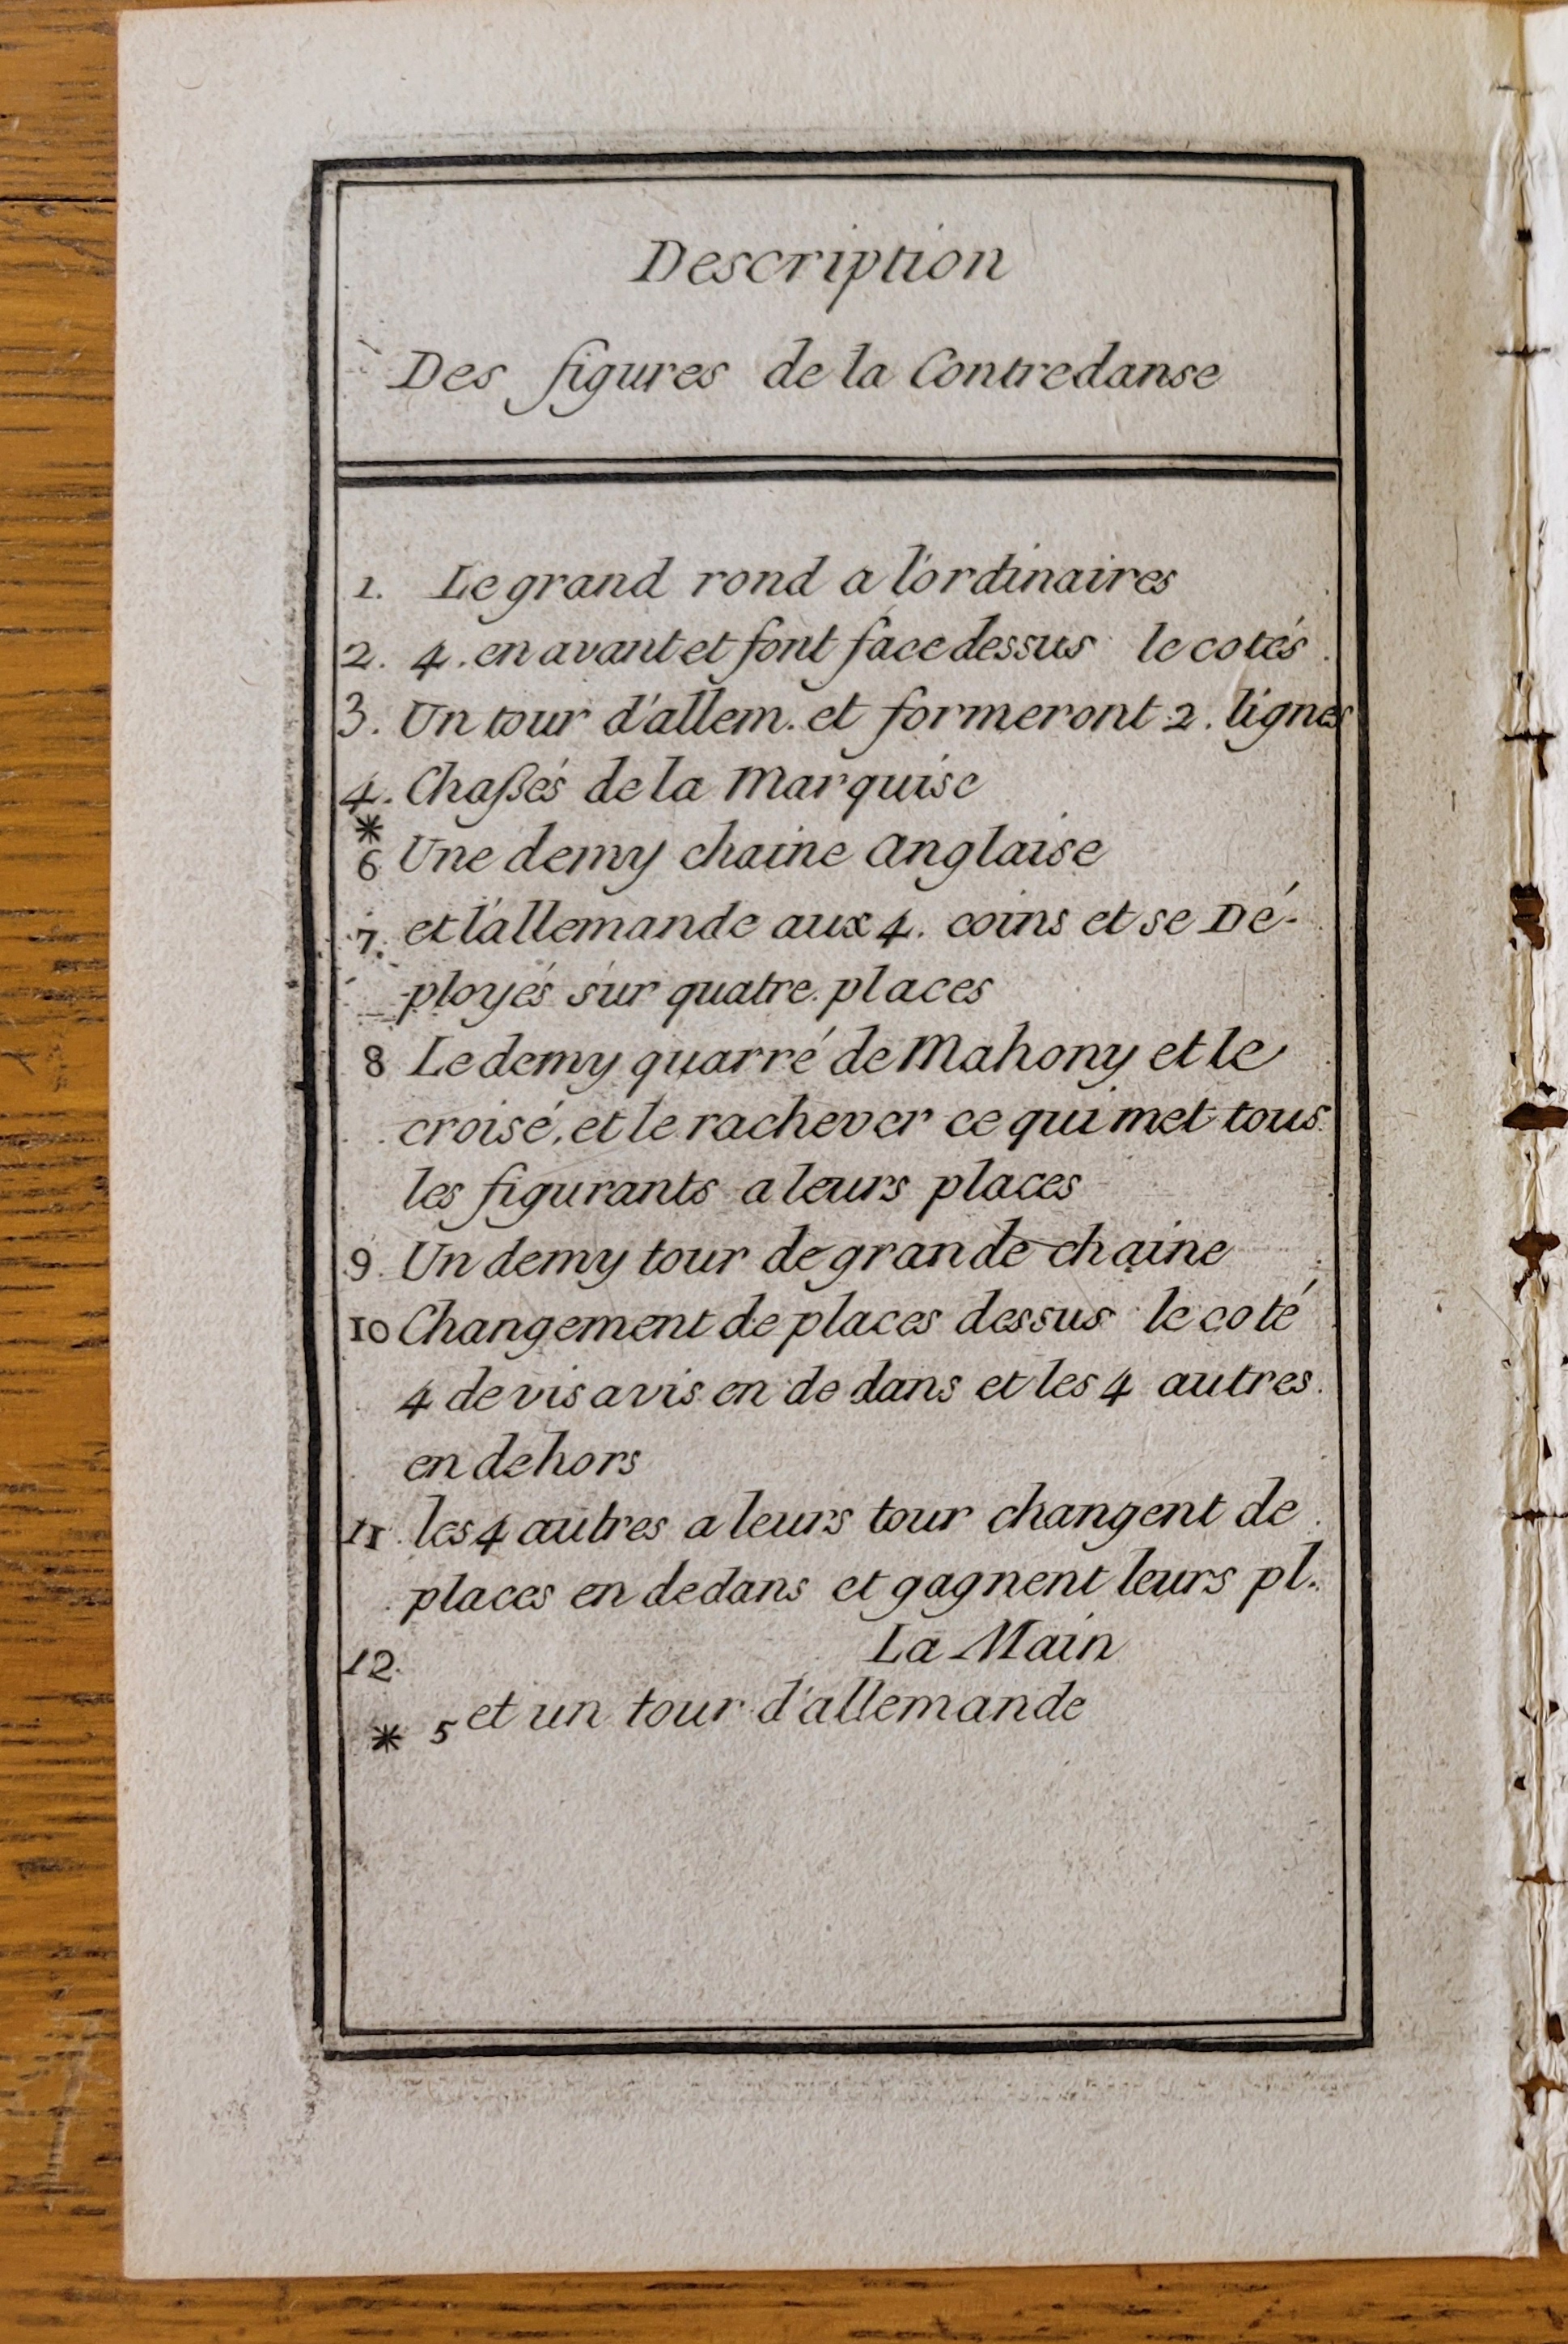 Description
Des figures de la Contredanse
1. Le grand rond a l'ordinaires
2. 4. en avant et font face dessus le cotés
3. Un tour d'allem. et formeront 2. lignes
4. Chaßés de la Marquise
*
6 Une demy chaine Anglaise
7. et l'allemande aux 4. coins et se Dé-
ployés sur quatre places
8 Le demy quarré de Mahony et le
croisé, et le rachever ce qui met tous
les figurants a leurs places
9. Un demy tour de grande chaine
10 Changement de places dessus le coté
4 de vis a vis en de dans et les 4 autres
en dehors
11. les 4 autres a leurs tour changent de
places en dedans et gagnent leurs pl.
12. La Main
* 5 et un tour d'allemande